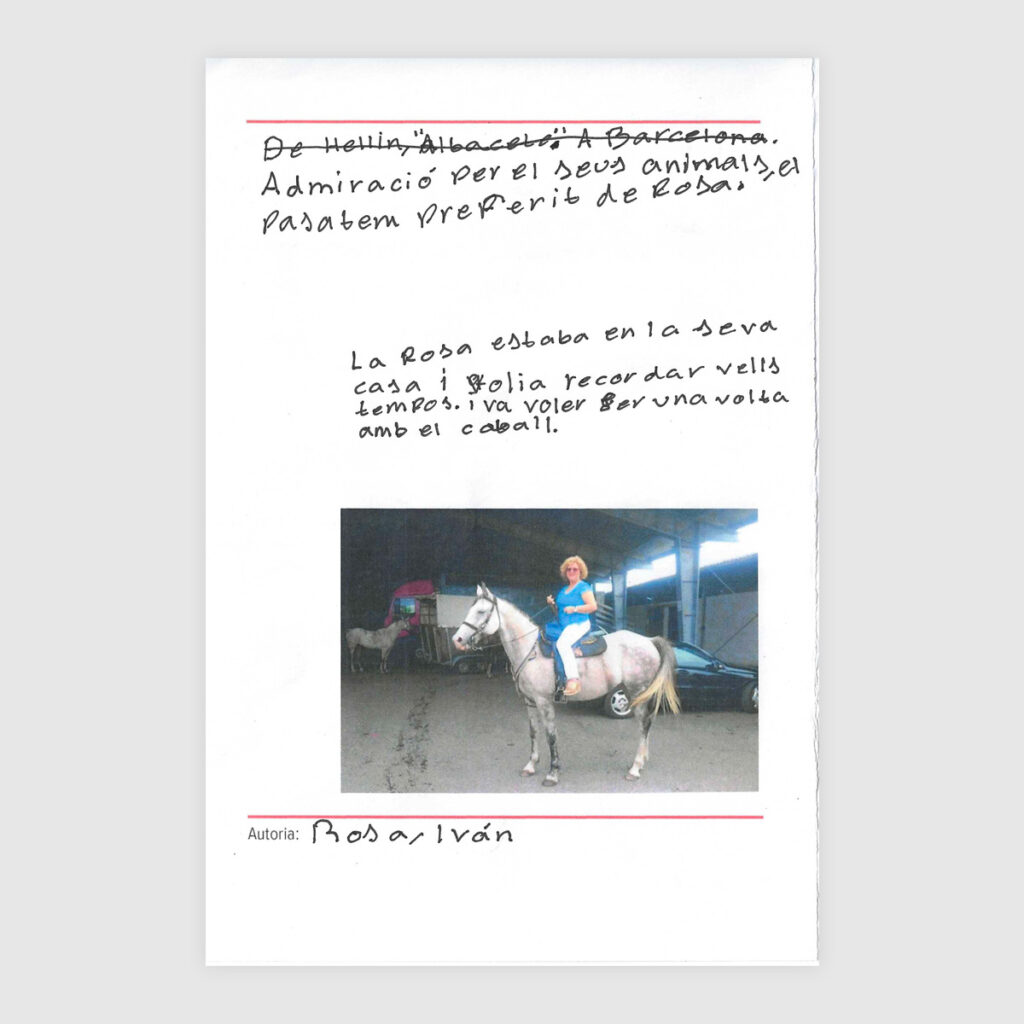 De Hellin, "Albacete." A Barcelona.
Admiració per el seus animals, el
pasatem preferit de Rosa.
La Rosa estaba en la seva
casa i solia recordar vells
tempos. i va voler fer una volta
amb el caball.
Autoria: Rosa, Iván